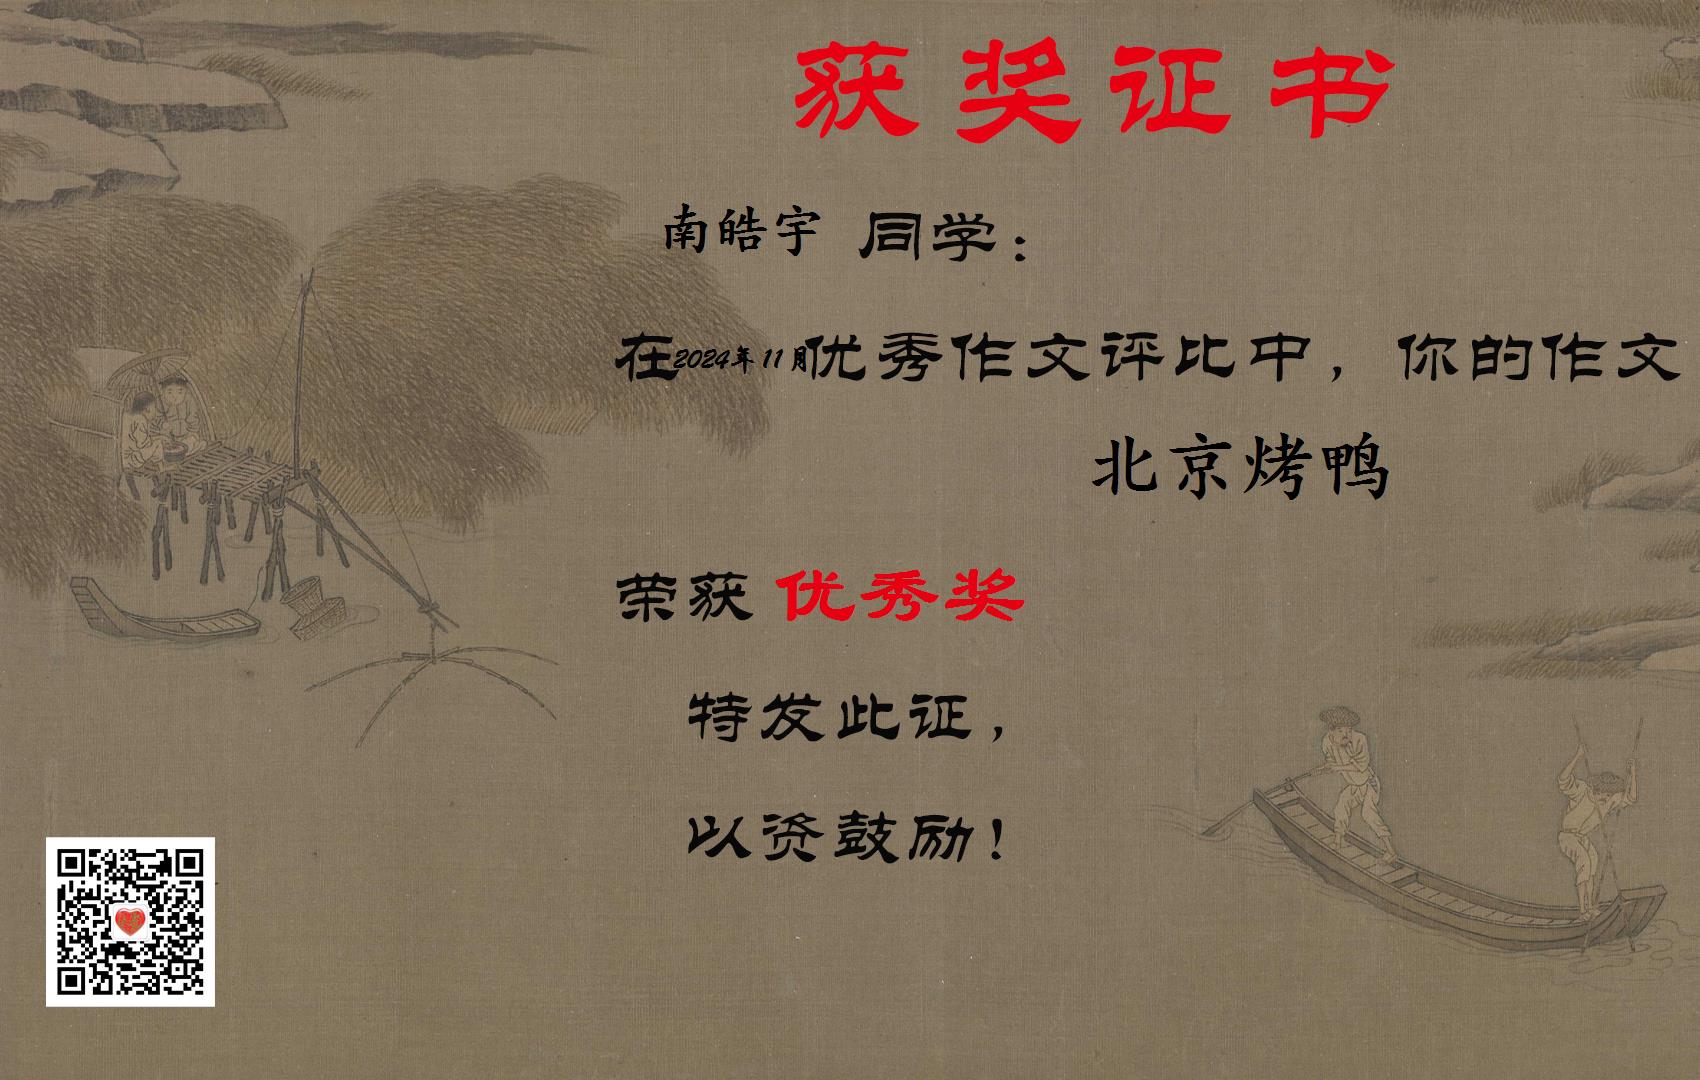 获奖证书
南皓宇 同学：
在2024年11月优秀作文评比中，你的作文
北京烤鸭
荣获 优秀奖
特发此证，
以资鼓励！